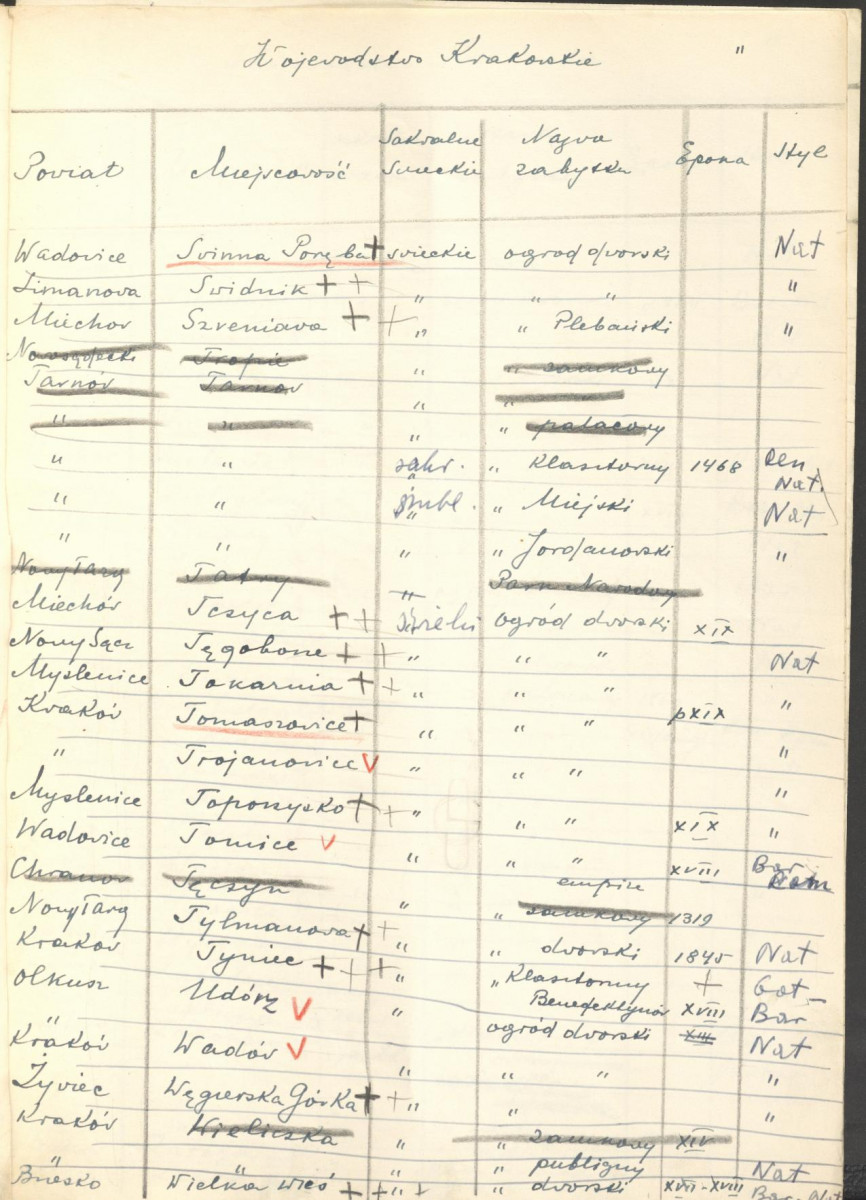 Województwo Krakowskie "
Powiat Miejscowość Sakralne Świeckie Nazwa zabytku Epoka Styl
Wadowice Svinna Poręba + svieckie ogrod dworski Nat
Limanowa Swidnik + + " " " "
Miechow Szreniawa + + " " Plebański "
Nowosądecki Tropie " " zamkowy
Tarnów Tarnow " "
" " " " pałacowy
" " sakr. " Klasztorny 1468 Ren Nat.
" " " Miejski Nat
" " " " Jordanowski "
Nowy Targ Tatry " Park Narodowy
Miechów Tczyca + + ogród dworski XIX
Nowy Sącz Tęgobone + + " " " Nat
Myślenice Tokarnia + + " " " "
Kraków Tomaszowice + " " " pXIX
" Trojanowice V " " " "
Myslenice Toporzysko + + " " " XIX "
Wadowice Tomice V " " " XVIII Bar
Chranow Tęczyn " empire
Nowy Targ Tylmanowa + + " " zamkowy 1319
Kraków Tyniec + + + " " dworski 1845 Nat
Olkusz Udórz V " " Klasztorny Benedektynów + XVIII Got - Bar
" ogród dworski XIII Nat
Kraków Wadów V " " " "
Żywiec Węgierska Górka + + " " "
Kraków Wieliczka " " zamkowy XIV
" " " " publiczny Nat
Brzesko Wielka wieś + + " + " dworski XVII-XVIII Bar-Nat